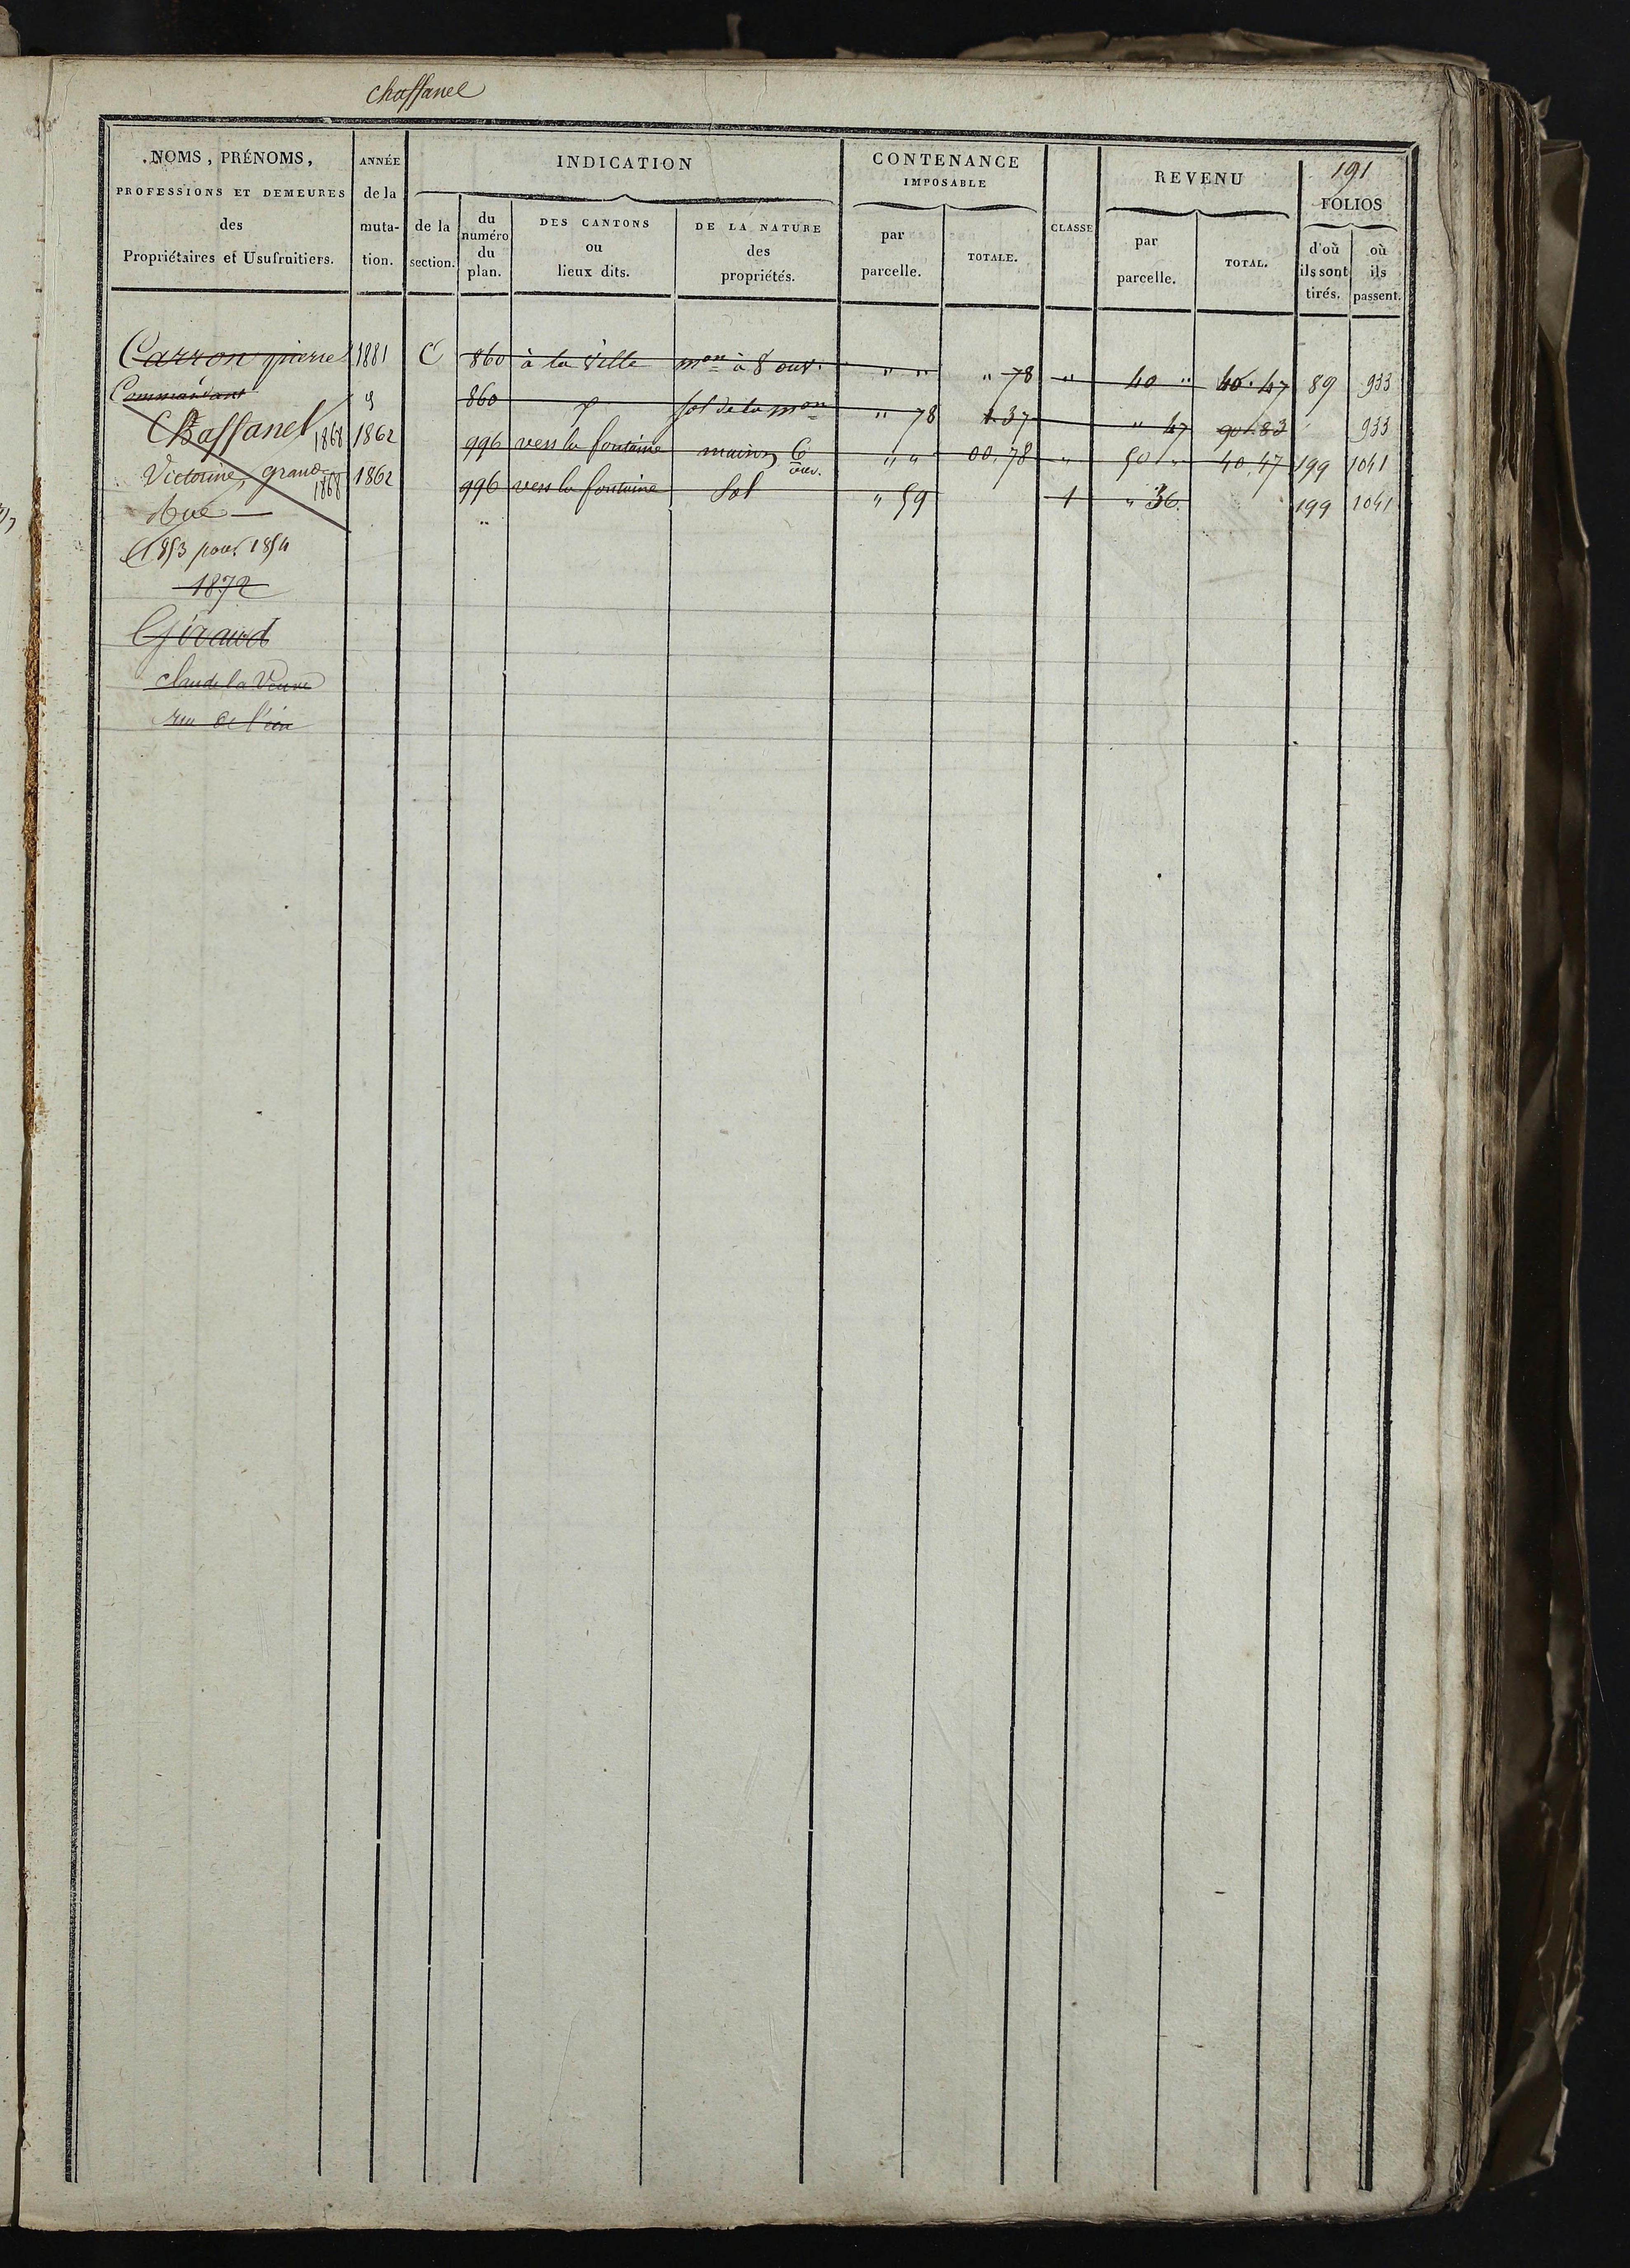 Chaffanel
191
NOMS, PRÉNOMS,
PROFESSIONS ET DEMEURES
des
Propriétaires et Usufruitiers.
ANNÉE
de la
muta-
tion.
INDICATION
de la
section.
du
numéro
du
plan.
DES CANTONS
ou
lieux dits.
DE LA NATURE
des
propriétés.
CONTENANCE
IMPOSABLE
par
parcelle.
TOTALE.
CLASSE
REVENU
par
parcelle.
TOTAL.
FOLIOS
d'où
ils sont
tirés.
où
ils
passent.
Carron pierre 1881 C 860 à la Ville mon à 8 ouv. " " " 78 " 40 " 40.47 89 933
Commandant 860 sol de la mon " 78 1.37 " 47 90.83 933
Chaffanel 1868 1862 996 vers la fontaine maison 6 ouv. " " 00.78 " 50 " 40.47 199 1041
Victorine, grande 1868 1862 996 vers la fontaine Sol " 59 1 " 36 199 1041
Rue
1853 pour 1854
1872
Giraud
claude la Veuve
rue de